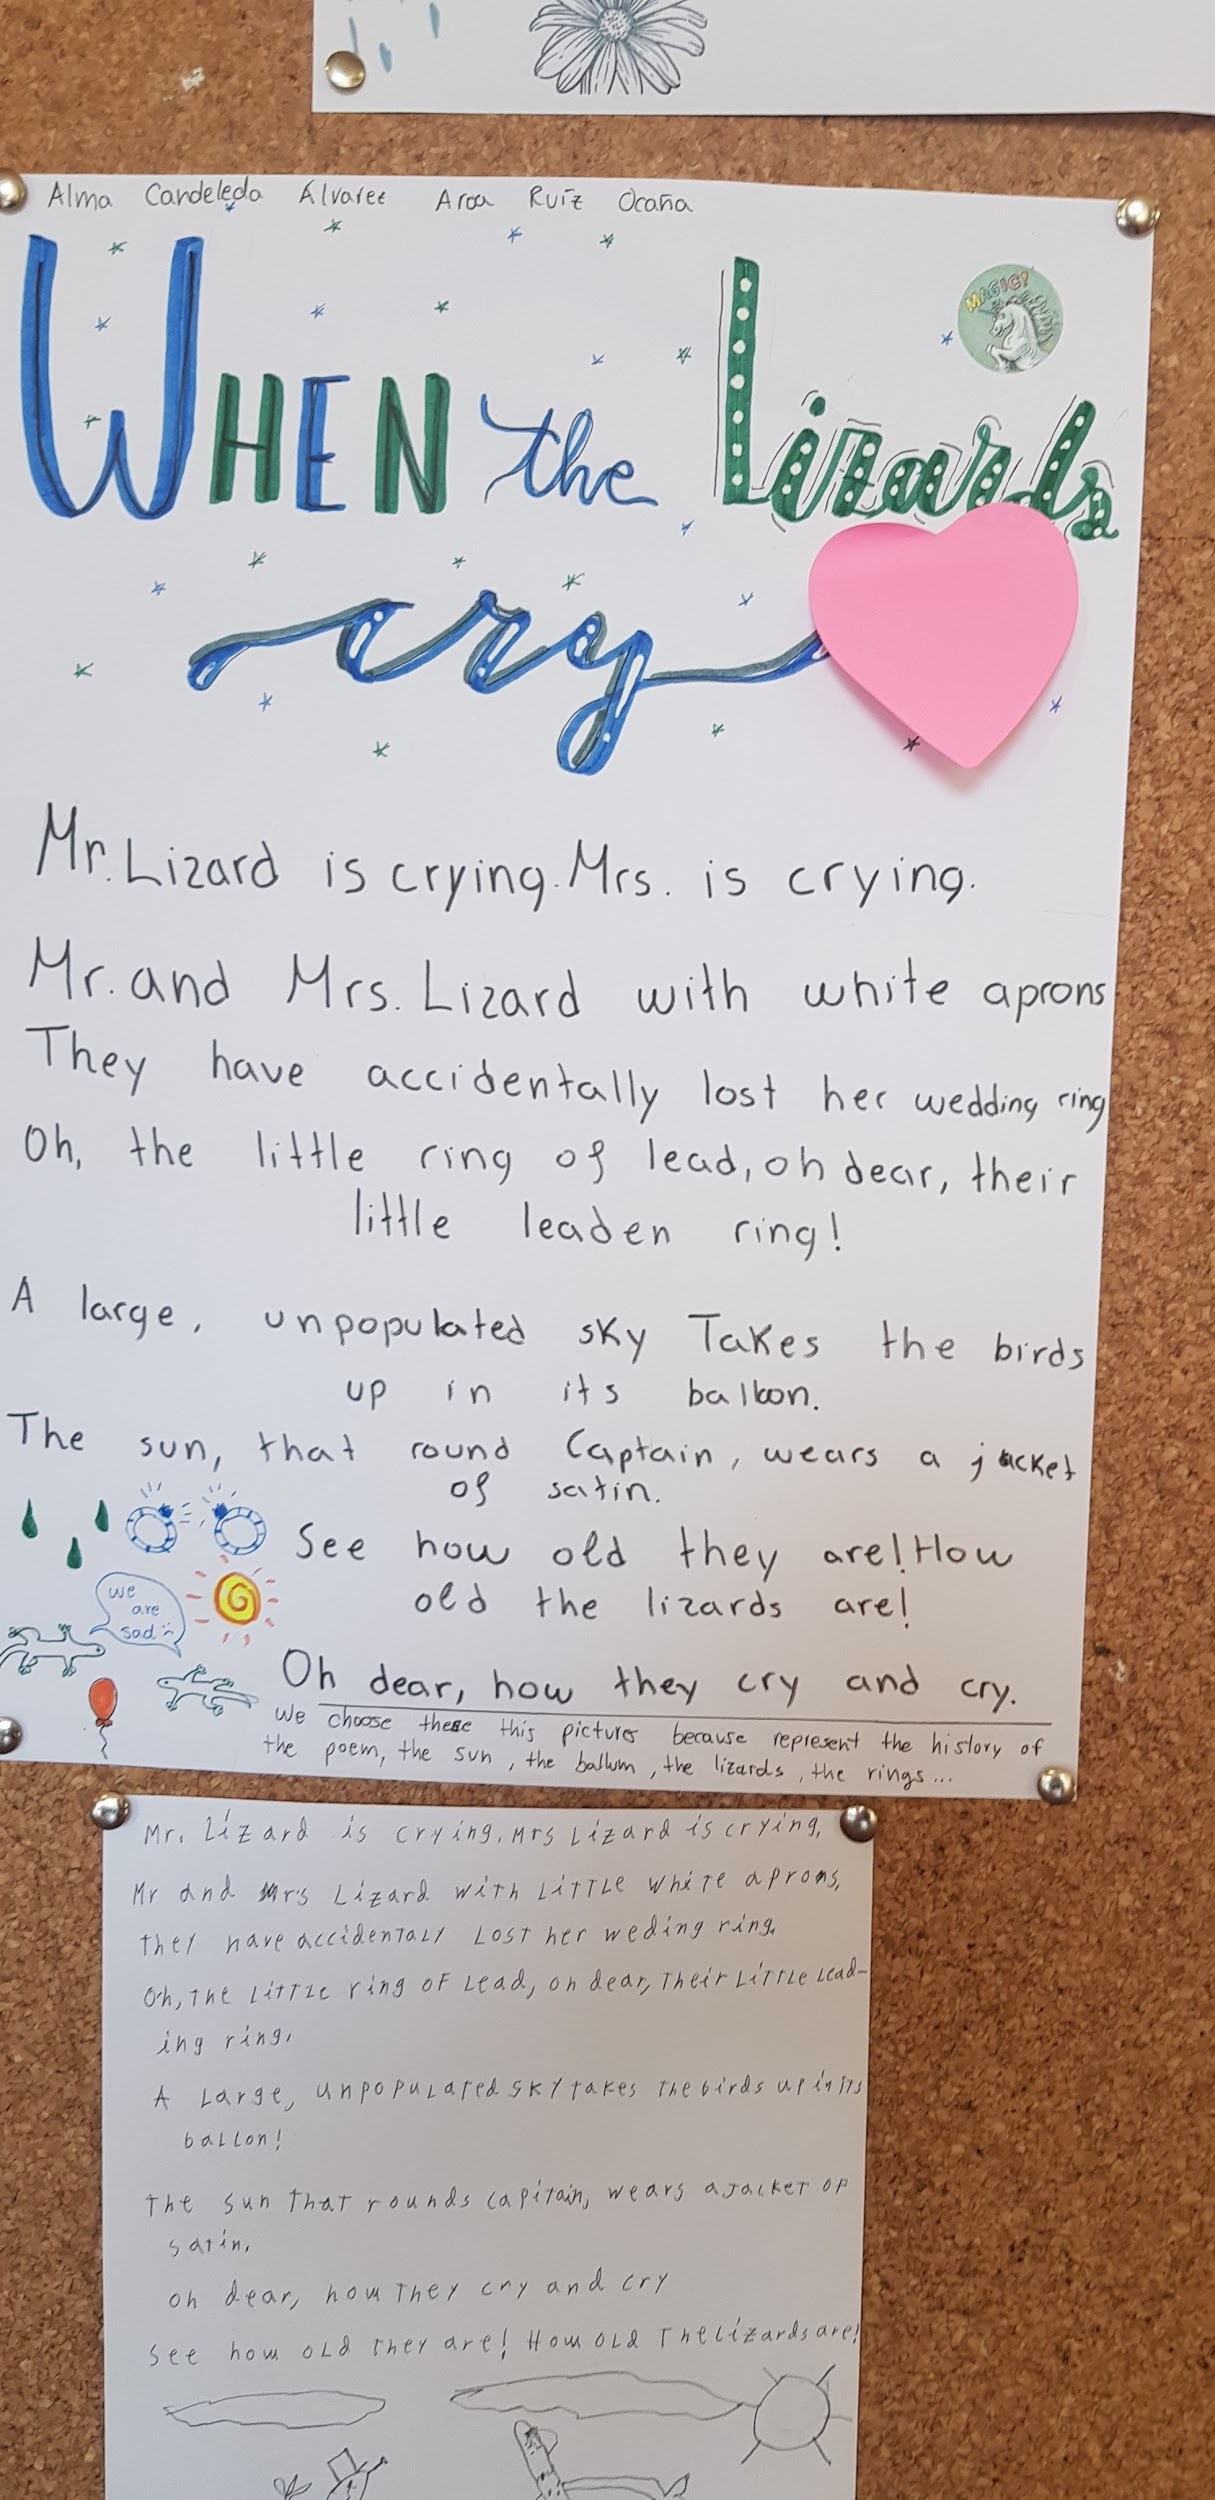 Alma Candeleda Álvarez Aroa Ruíz Ocaña
WHEN the Lizards
MAGIC!
cry
Mr. Lizard is crying. Mrs. is crying.
Mr. and Mrs. Lizard with white aprons
They have accidentally lost her wedding ring
Oh, the little ring of lead, oh dear, their
little leaden ring!
A large, unpopulated sky Takes the birds
up in its balloon.
The sun, that round Captain, wears a jacket
of satin.
See how old they are! How
old the lizards are!
we
are
sad :(
Oh dear, how they cry and cry.
We choose these this pictures because represent the history of
the poem, the sun, the ballum, the lizards, the rings...
Mr. Lizard is crying. Mrs Lizard is crying,
Mr and Mrs Lizard with LITTLE white aprons,
they have accidentaly Lost her weding ring.
Oh, The LITTLE ring OF Lead, oh dear, Their LITTLE Lead-
ing ring,
A Large, unpopulated sky takes The birds up in its
ballon!
The sun That rounds capitain, wears a Jacket OF
satin.
oh dear, how They cry and cry
See how OLd They are! How OLd The Lizards are!